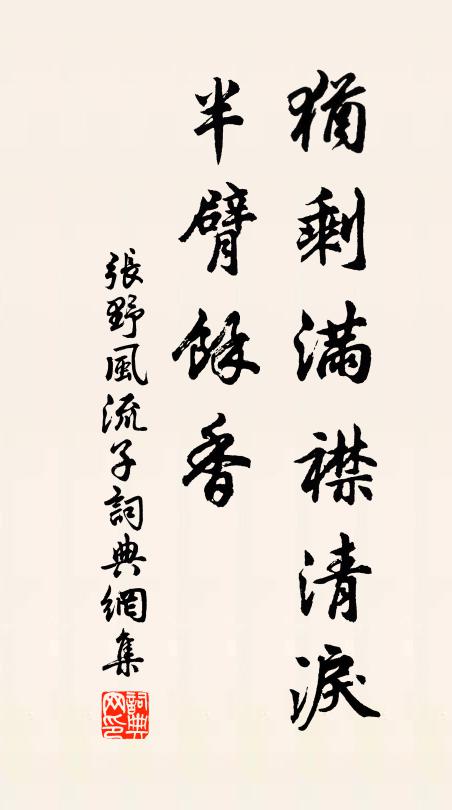 猶剩滿襟清淚
半臂餘香
張野風流子詞典網集
詞典网印